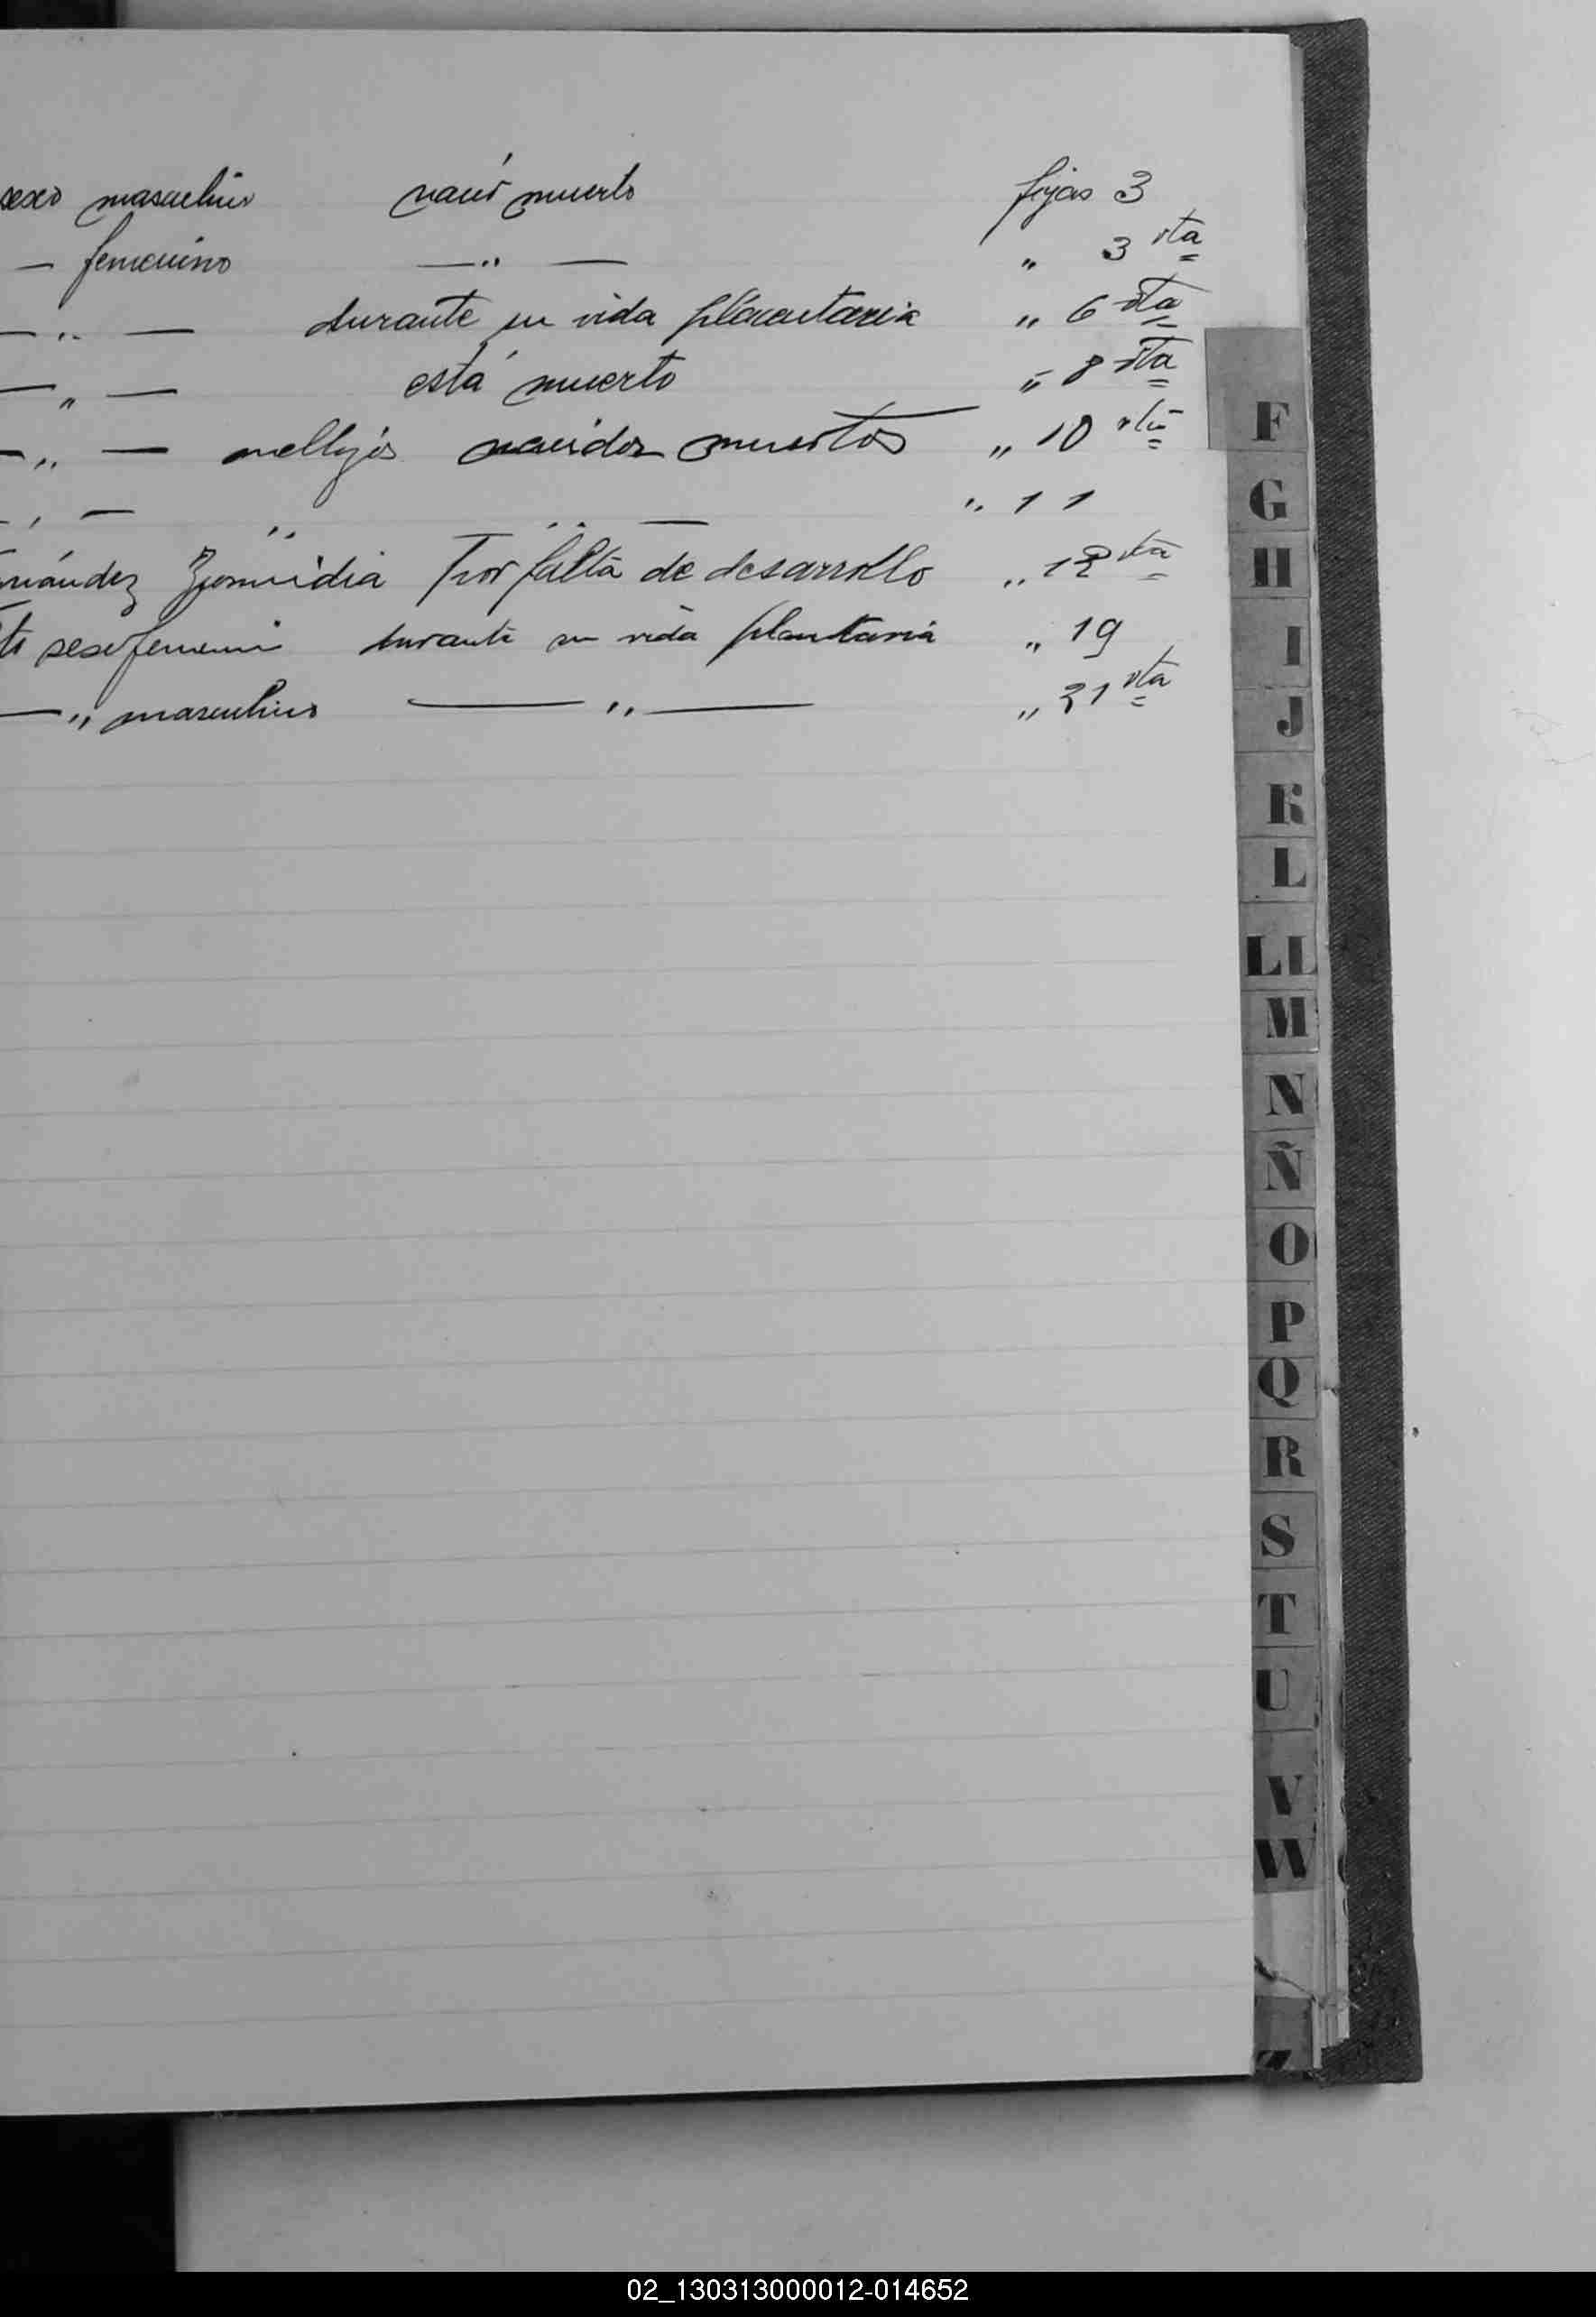 sexo masculino nació muerto fojas 3
— femenino — „ — „ 3 vta
— „ — durante su vida placentaria „ 6 vta
— „ — está muerto „ 8 vta
— „ — mellijos nacidos muertos „ 10 vta
„ — „ „ — „ 11
Por falta de desarrollo „ 12 vta
sexo femeni durante su vida plantaria „ 19
— „ masculino — „ — „ 21 vta
F
G
H
I
J
K
L
LL
M
N
Ñ
O
P
Q
R
S
T
U
V
W
02_130313000012-014652